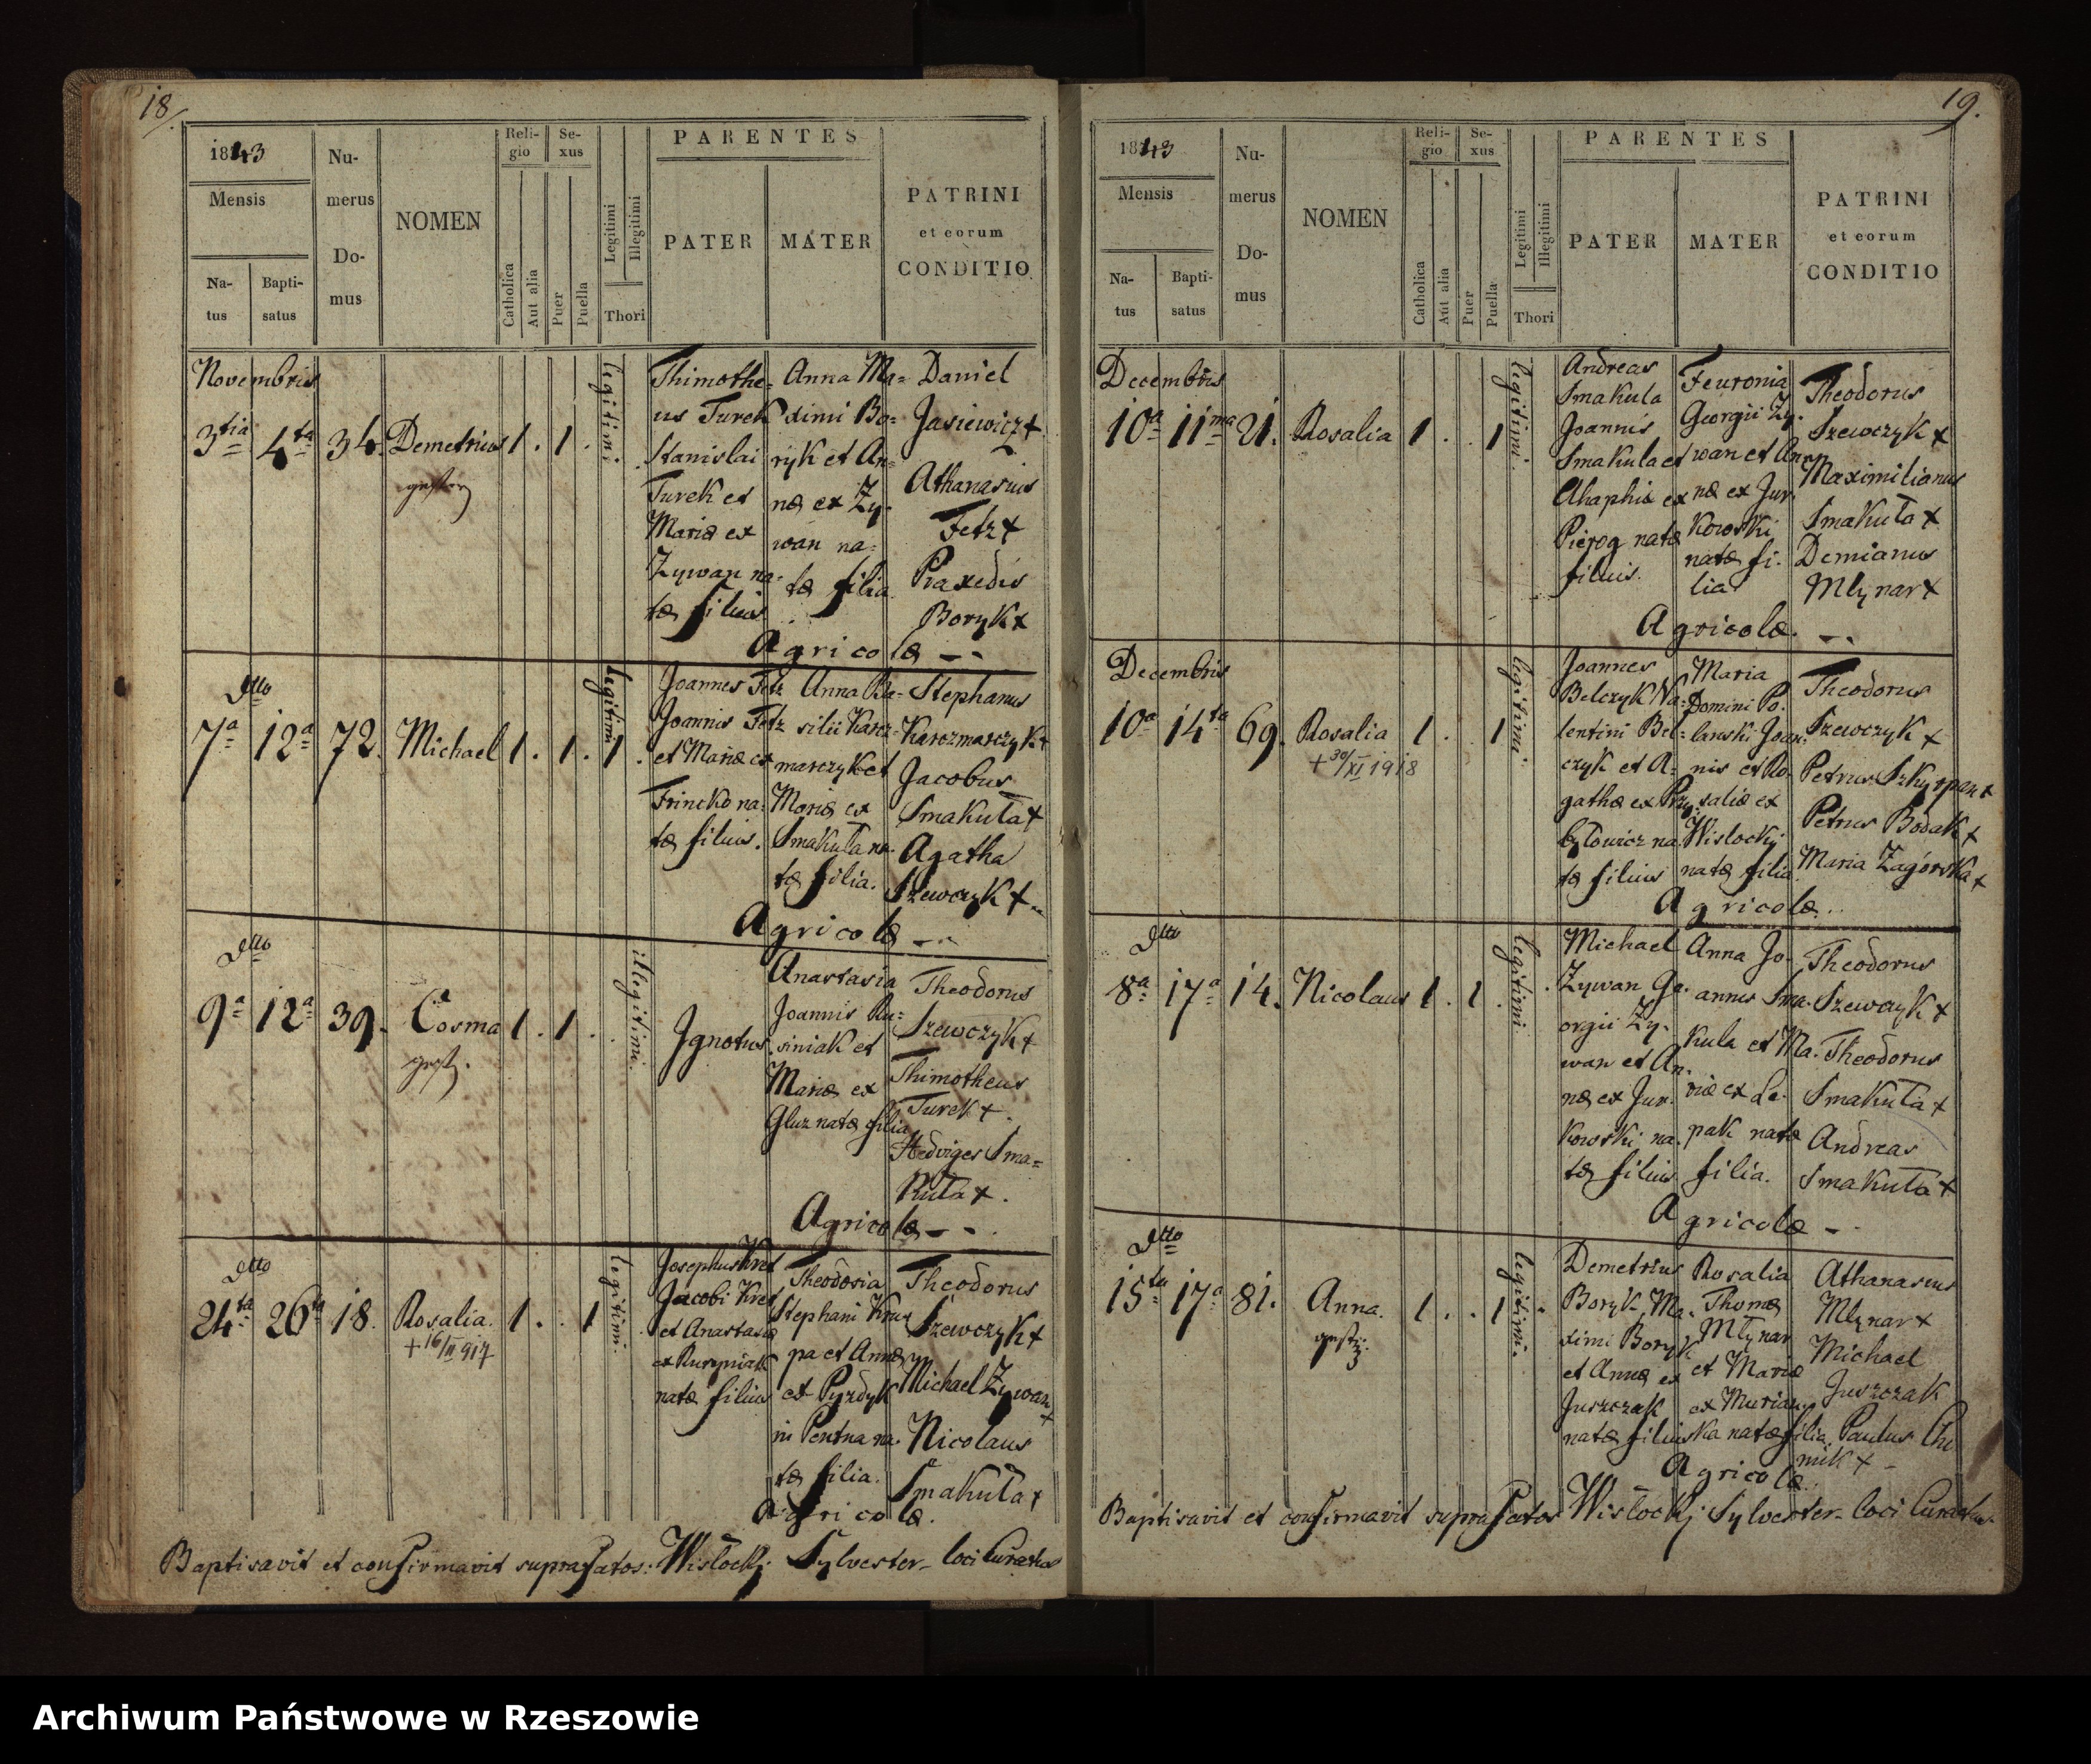 18.
1843
Mensis
Na-
tus
Bapti-
satus
Nu-
merus
Do-
mus
NOMEN
Reli-
gio
Catholica
Aut alia
Se-
xus
Puer
Puella
Legitimi
Illegitimi
Thori
PARENTES
PATER
MATER
PATRINI
et eorum
CONDITIO
Novembris
3tia 4ta 34. Demetrius 1 . 1 .
legitimi.
Thimothe=
us Turek
Stanislai
Turek et
Mariæ ex
Zywan na=
tæ filius
Anna Ma=
ximi Bo=
ryk et An=
næ ex Zy=
wan na=
tæ filia
Daniel
Jasiewicz +
Athanasius
Fetz +
Praxedis
Boryk x
Agricolæ
dtto
7a 12a 72. Michael 1 . 1 . 1 .
legitimi
Joannes Fetz
Joannis Fetz
et Mariæ ex
Frincko na=
tæ filius.
Anna Ba=
silii Karcz=
marczyk et
Mariæ ex
Smakuła na=
tæ filia.
Stephanus
Karczmarczyk +
Jacobus
Smakuła +
Agatha
Szewczyk +
Agricolæ
dtto
9a 12a 39. Cosma 1 . 1 .
illegitimi.
Ignotus
Anastasia
Joannis Ru=
siniak et
Mariæ ex
Gluz natæ filia
Theodorus
Szewczyk +
Thimotheus
Turek + .
Hedviges Sma=
kuła + .
Agricolæ
dtto
24ta 26ta 18. Rosalia. 1 . . 1
+ 16/II 917
legitimi.
Josephus Kret
Jacobi Kret
et Anastasiæ
ex Rusyniak
natæ filius
Theodosia
Stephani Kru
pa et Annæ
ex Pyrdyk
ni Pentna na.
tæ filia.
Theodorus
Szewczyk +
Michael Zywan
+
Nicolaus
Smakuła +
Agricolæ.
Baptisavit et confirmavit suprafatos: Wisłockj Sylvester - loci Curatus
19.
1843
Mensis
Na-
tus
Bapti-
satus
Nu-
merus
Do-
mus
NOMEN
Reli-
gio
Catholica
Aut alia
Se-
xus
Puer
Puella
Legitimi
Illegitimi
Thori
PARENTES
PATER
MATER
PATRINI
et eorum
CONDITIO
Decembris
10a 11ma 21. Rosalia 1 . . 1
legitimi.
Andreas
Smakula
Joannis
Smakula et
Ahaphiæ ex
Pierog natæ
filius.
Feuronia
Georgii Zy.
wan et An
næ ex Jur.
kowski
natæ fi.
lia
Theodorus
Szewczyk x
Maximilianus
Smakuła x
Demianus
Młynar x
Agricolæ.
Decembris
10a 14ta 69. Rosalia 1 . . 1
+ 30/XI 1918
legitimi.
Joannes
Belczyk Va=
lentini Bel=
czyk et A=
gathæ ex Przy
byłowicz na
tæ filius
Maria
Domini Po.
lanski Joan.
nis et Ro.
saliæ ex
Wislockj
natæ filia
Theodorus
Szewczyk x
Petrus Szkyrpan x
Petrus Bodak x
Maria Zagórska x
Agricolæ..
dtto
8a 17a 14. Nicolaus 1 . 1 .
legitimi.
Michael
Zywan Ge.
orgii Zy.
wan et An.
næ ex Jur.
kowski na.
tæ filius
Anna Jo.
annes Sma.
kula et Ma.
riæ ex Le.
pak natæ
filia.
Theodorus
Szewczyk x
Theodorus
Smakuła x
Andreas
Smakuła x
Agricolæ
dtto
15ta 17a 81. Anna. 1 . . 1
legitimi.
Demetrius
Boryk Ma.
ximi Boryk
et Annæ ex
Juszczak
natæ filius
Rosalia
Thomæ
Młynar
et Mariæ
ex Murian
ka natæ filia
Athanasius
Młynar x
Michael
Juszczak
Paulus Chi
mik x
Agricolæ.
Baptisavit et confirmavit suprafatos Wisłockj Sylvester - loci Curatus
Archiwum Państwowe w Rzeszowie